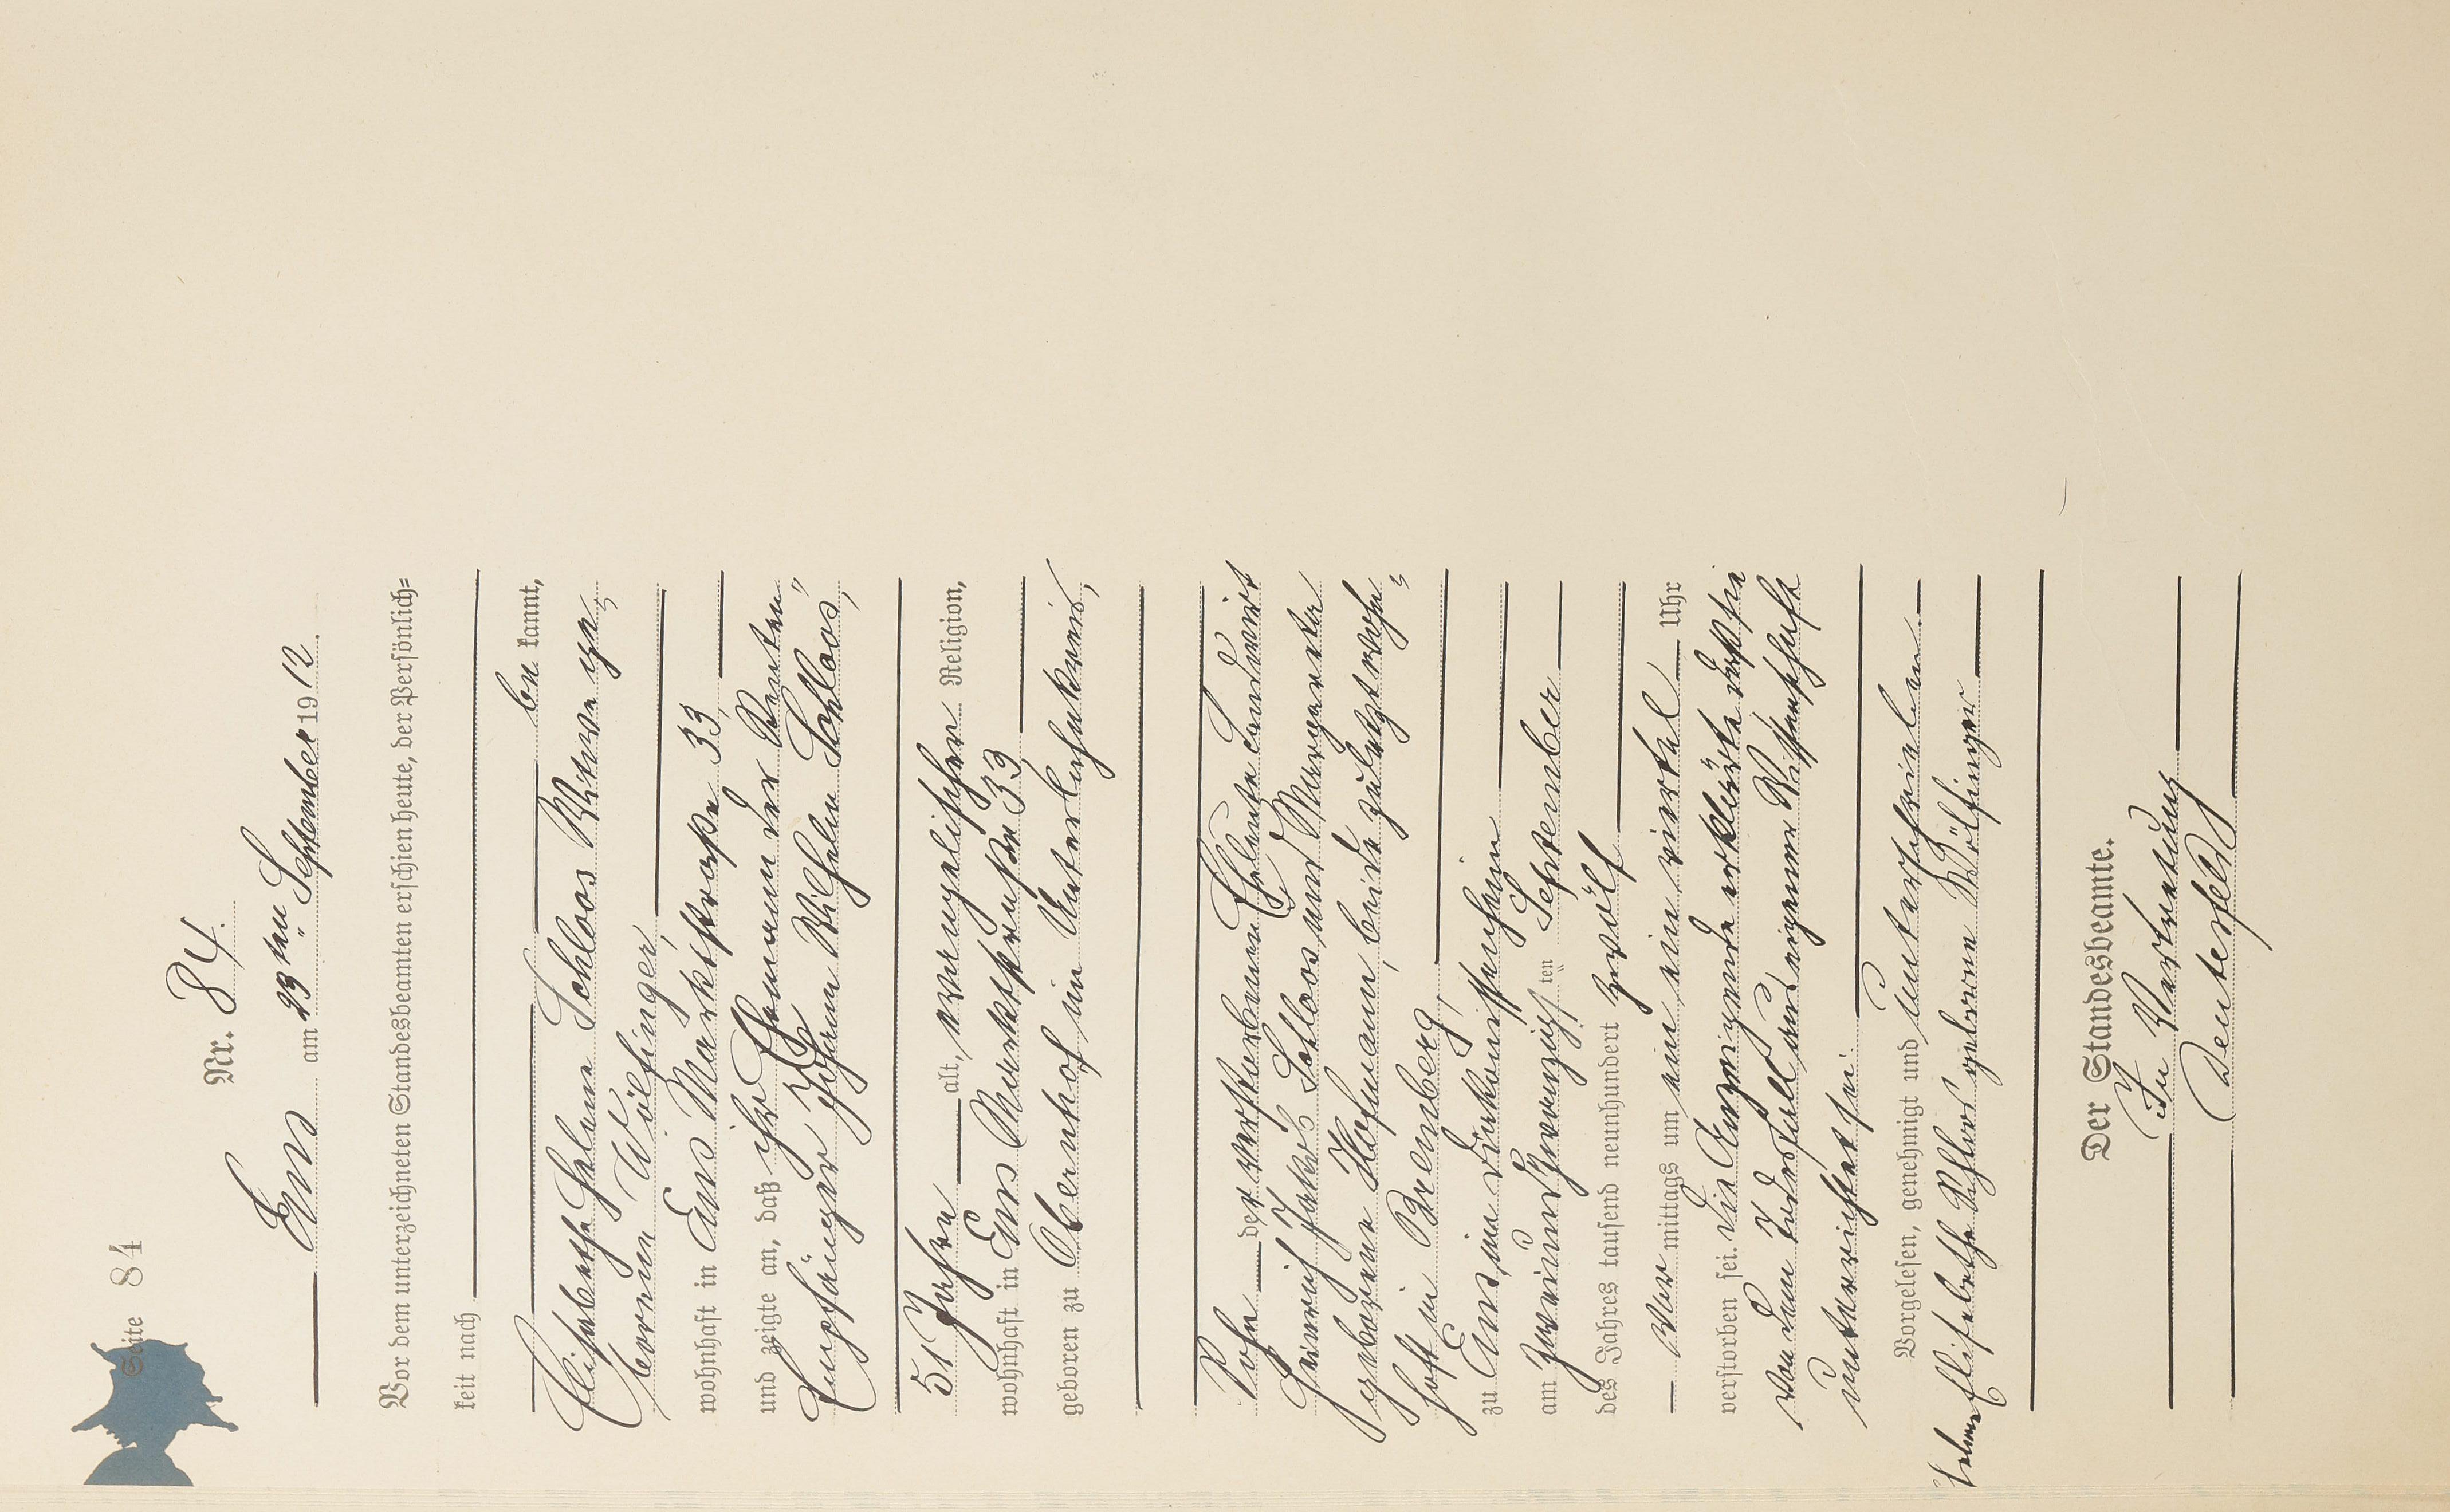 Seite 84
Nr. 84.
Ems am 23ten September 1912.
Vor dem unterzeichneten Standesbeamten erschien heute, der Persönlich=
keit nach
be kannt,
Elisabethe Helene Schloos Witwe ge=
borene Wölfinger,
wohnhaft in Ems Marktstraße 33,
und zeigte an, daß ihr Ehemann der Renten=
Empfänger Johann Wilhelm Schloos,
51 Jahre alt, evangelischer Religion,
wohnhaft in Ems Marktstraße 33,
geboren zu Obernhof im Unterlahnkreis,
Sohn der verstorbenen Eheleute Landwirt
Heinrich Jakob Schloos und Margareta
geborene Hofmann, beide zuletzt wohn=
haft in Bremberg,
zu Ems, im Diakonissenheim
am zweiundzwanzigsten September
des Jahres tausend neunhundert zwölf
Vor mittags um ein ein viertel Uhr
verstorben sei. Die Anzeigende erklärte daß sie
von dem Todesfall aus eigener Wissenschaft
unterrichtet sei.
Vorgelesen, genehmigt und unterschrieben.
Helene Elisabethe Schloos geborene Wölfinger
Der Standesbeamte.
In Vertretung